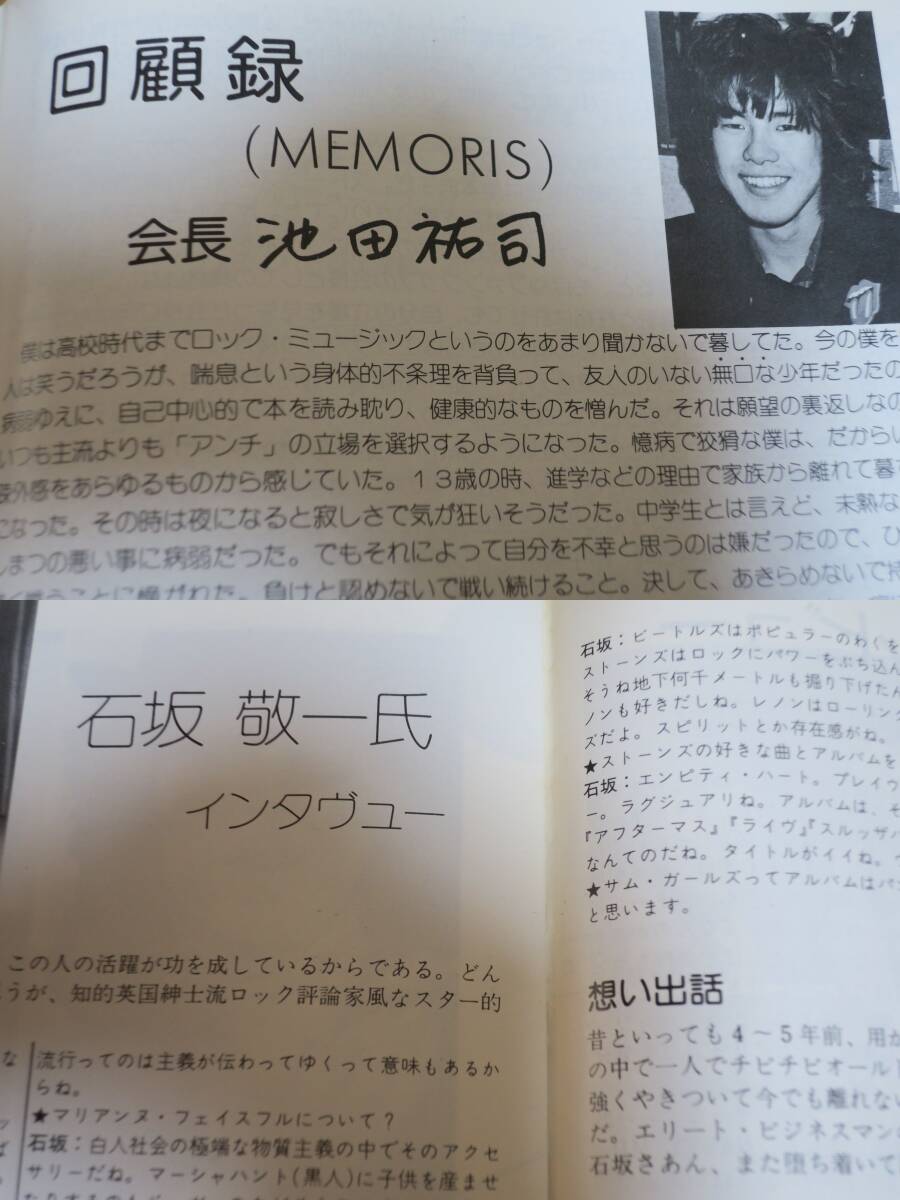 回顧録
(MEMORIS)
会長 池田祐司
僕は高校時代までロック・ミュージックというのをあまり聞かないで暮してた。今の僕を
人は笑うだろうが、喘息という身体的不条理を背負って、友人のいない無口な少年だったの
病弱ゆえに、自己中心的で本を読み耽り、健康的なものを憎んだ。それは願望の裏返しなの
いつも主流よりも「アンチ」の立場を選択するようになった。憶病で狡猾な僕は、だからい
疎外感をあらゆるものから感じていた。13歳の時、進学などの理由で家族から離れて暮す
になった。その時は夜になると寂しさで気が狂いそうだった。中学生とは言えど、未熟な
しまつの悪い事に病弱だった。でもそれによって自分を不幸と思うのは嫌だったので、ひ
うことに憧がれた。負けと認めないで戦い続けること。決して、あきらめないで持
石坂 敬一氏
インタヴュー
この人の活躍が功を成しているからである。どん
うが、知的英国紳士流ロック評論家風なスター的
な
流行ってのは主義が伝わってゆくって意味もあるか
らね。
★マリアンヌ・フェイスフルについて?
石坂:白人社会の極端な物質主義の中でそのアクセ
サリーだね。マーシャハント(黒人)に子供を産ませ
石坂:ビートルズはポピュラーのわくを
ストーンズはロックにパワーをぶち込ん
そうね地下何千メートルも掘り下げたん
ノンも好きだしね。レノンはローリング
ズだよ。スピリットとか存在感がね。
★ストーンズの好きな曲とアルバムを
石坂:エンピティ・ハート。プレイウ
ー。ラグジュアリね。アルバムは、そ
『アフターマス』『ライヴ』『スルッザパ
なんてのだね。タイトルがイイね。
★サム・ガールズってアルバムはパン
と思います。
想い出話
昔といっても4～5年前、用が
の中で一人でチビチビオールド
強くやきついて今でも離れない
だ。エリート・ビジネスマンの
石坂さあん、また堕ち着いて